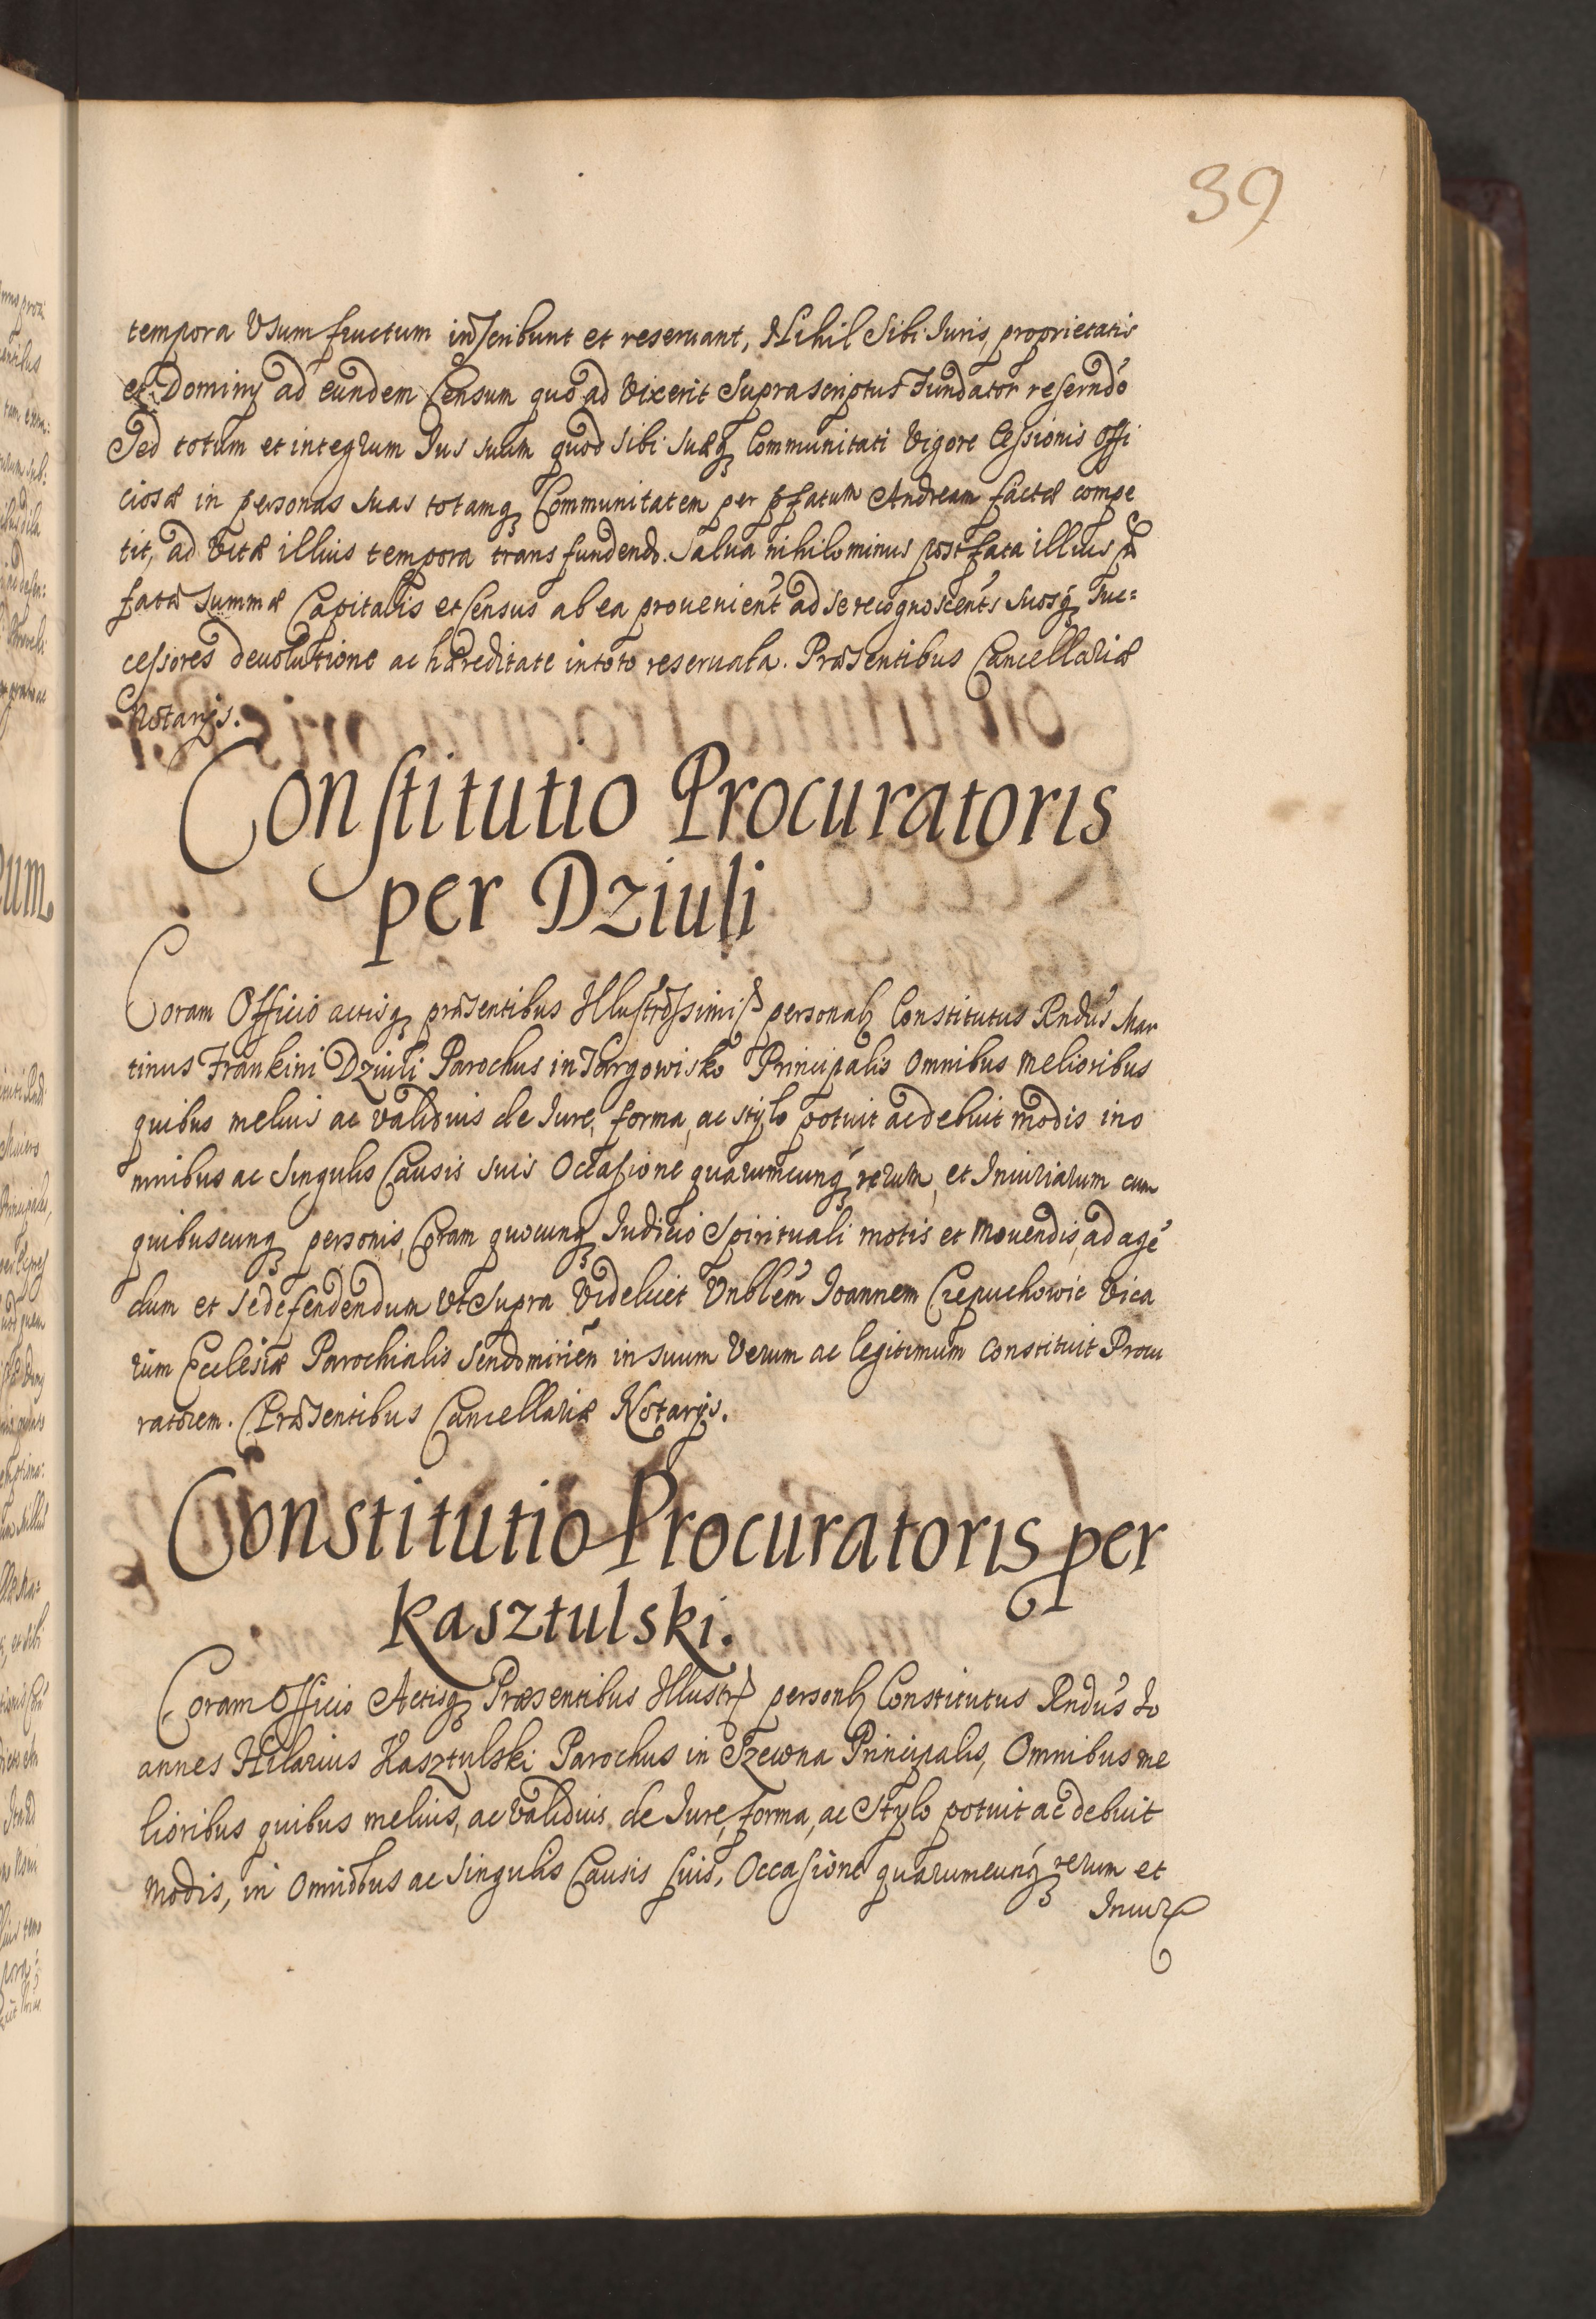 39
tempora Usum fructum inscribunt et reseruant, Nihil Sibi Iuris, proprietatis
et Dominy ad eundem Censum quo ad Vixerit Suprascriptus Fundator reserudo
Sed totum et integrum Ius suum quod sibi suæq Communitati Vigore Cessionis Offi
ciosæ in personas suas totamq Communitatem per pfatum Andream factæ compe
tit, ad Vitæ illius tempora transfundendo. Salua nihilominus post fata illius
fatæ Summæ Capitalis et Census ab ea prouenient ad se recognoscents suosq Suc=
cessores deuolutione ac hæreditate in toto reseruata. Præsentibus Cancellariæ
Notarijs.
Constitutio Procuratoris
per Dziuli
Coram Officio actisq præsentibus personalr Constitutus Rndus Mar
tinus Frankini Dziuli Parochus in Targowisko Principalis Omnibus melioribus
quibus melius ac validius de Iure, forma, ac stylo potuit ac debuit modis in o
mnibus ac Singulis Causis suis Occasione quarumcunq rerum, et Iniuriarum cum
quibuscunq personis, Coram quocunq Iudicio Spirituali motis et Mouendis, ad agē
dum et se defendendum Vt Supra Videlicet Vnblem Ioannem Crepuchowic Vica
rium Ecclesiæ Parochialis Sendomirien in suum Verum ac legitimum constituit Procu
ratorem. Præsentibus Cancellariæ Notarijs.
Constitutio Procuratoris per
Kasztulski.
Coram Officio Actisq Præsentibus Illustr personlr Constitutus Rndus Io
annes Hilarius Kasztulski Parochus in Szewna Principalis, Omnibus me
lioribus quibus melius, ac validius de Iure, forma, ac Stylo potuit ac debuit
Modis, in Omnibus ac Singulis Causis suis, Occasione quarumcunq rerum et
Iniur